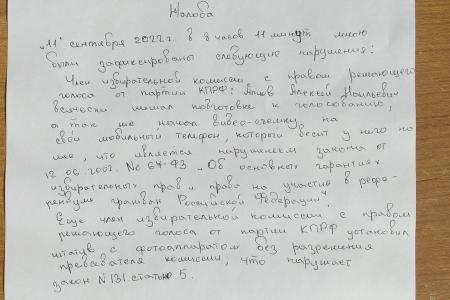 Жалоба
„11" сентября 2022 г. в 8 часов 11 минут мною
были зафиксированы следующие нарушения:
Член избирательной комиссии с правом решающего
голоса от партии КПРФ: Алексей Ильевич
всячески мешал подготовке к голосованию,
а так же начал видео-съёмку на
свой мобильный телефон, который весит у него на
шее, что является нарушением закона от
12.06.2002. № 67-ФЗ „Об основных гарантиях
избирательных прав и права на участие в рефе-
рендуме граждан Российской Федерации".
Еще член избирательной комиссии с правом
решающего голоса от партии КПРФ установил
штатив с фотоаппаратом без разрешения
комиссии, что нарушает
закон N 131 статью 5.